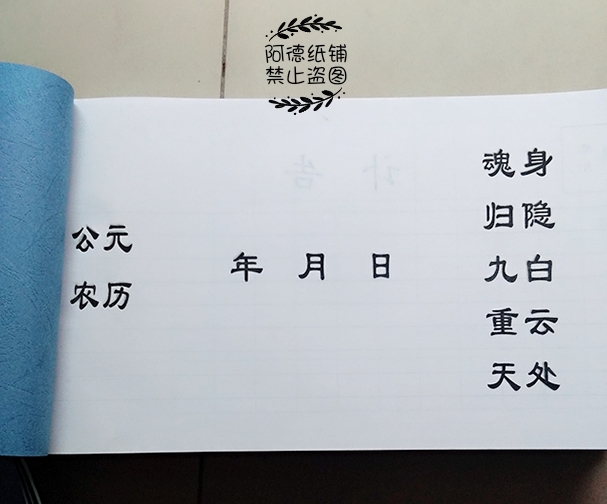 阿德纸铺
禁止盗图
身隐白云处
魂归九重天
公元
农历
年 月 日